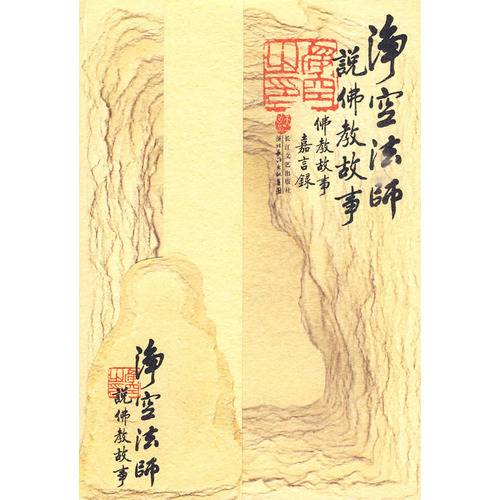 淨空法師
説佛教故事
佛教故事
嘉言錄
长江文艺出版社
淨空法師
説佛教故事